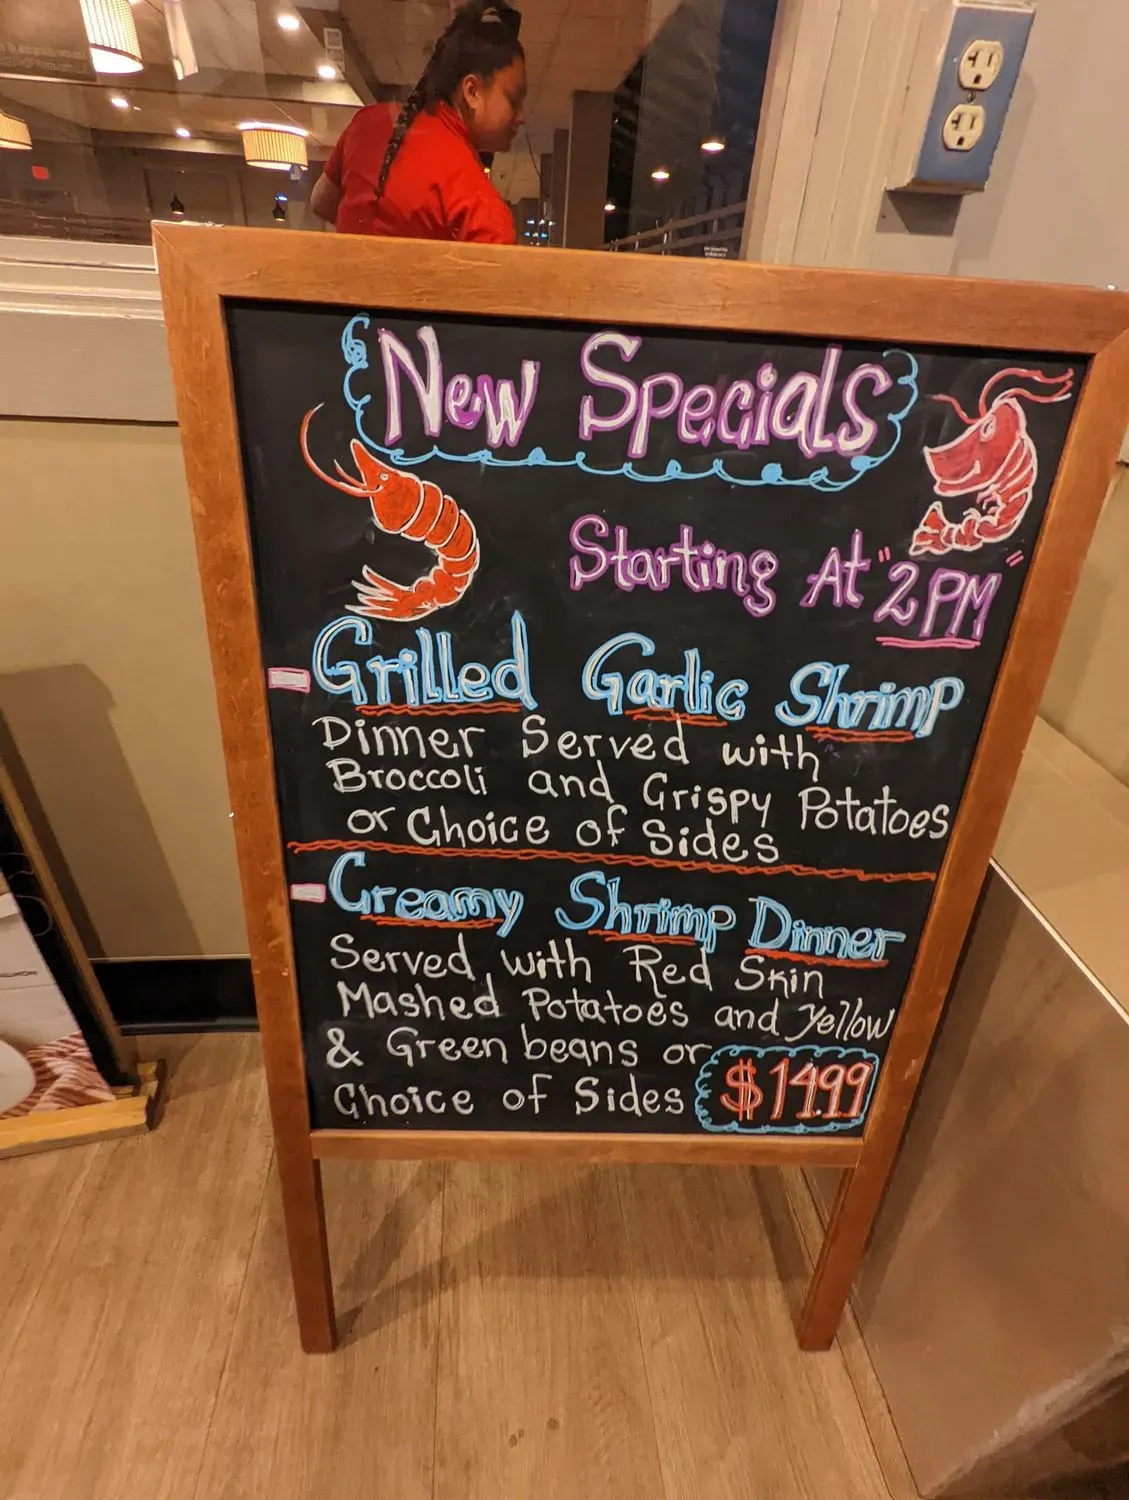 New Specials
Starting At "2 PM"
- Grilled Garlic Shrimp
Dinner Served with
Broccoli and Crispy Potatoes
or Choice of Sides
- Creamy Shrimp Dinner
Served with Red Skin
Mashed Potatoes and Yellow
& Green beans or
Choice of Sides $14.99